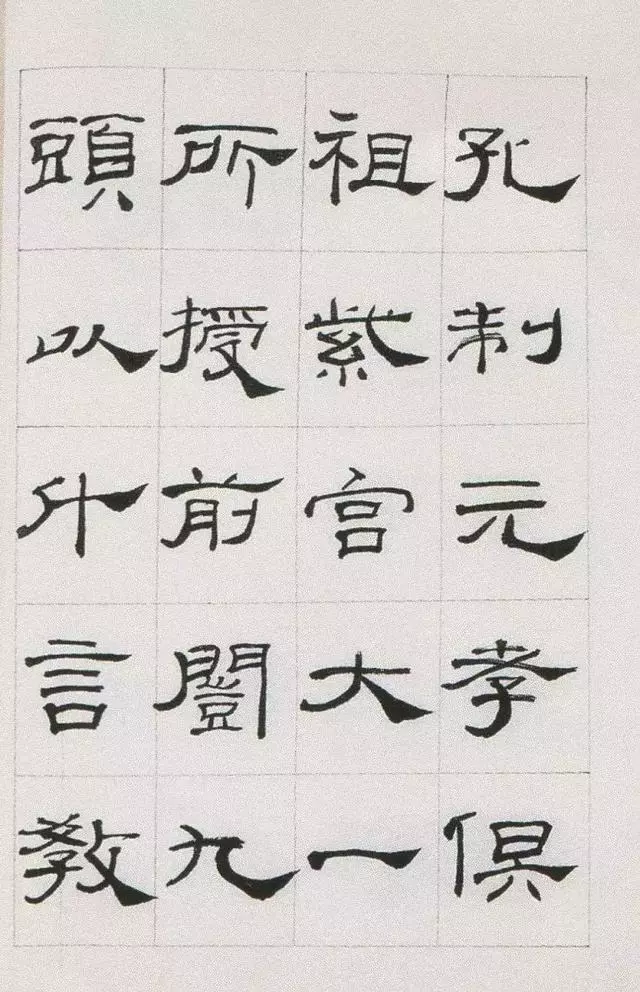 孔制元孝俱
祖紫宫大一
所授前闓九
頭以什言教